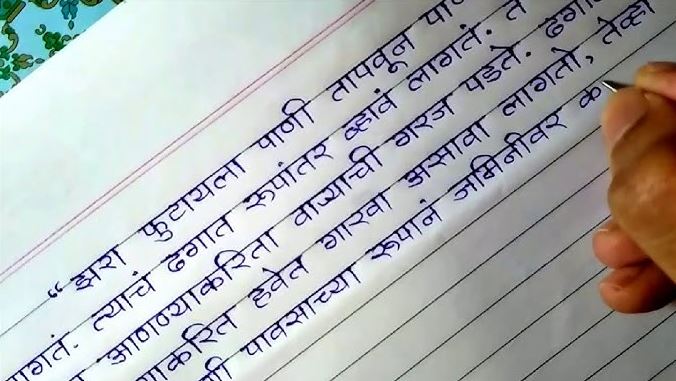 “झरा फुटायला पाणी तापवून
लागतं. त्याचं ढगात रूपांतर व्हावं लागतं.
आणण्याकरिता वाऱ्याची गरज पडते.
हवेत गारवा असावा लागतो, तेव्हा
पावसाच्या रूपानं जमिनीवर